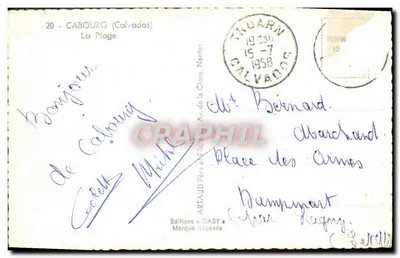 20 - CABOURG (Calvados)
La Plage
TROARN
15-7
1958
CALVADOS
Bonjour
de Cabourg
Mr Bernard
Marchand
Place des Armes
Dampmart
(par Lagny
ARTAUD Père et Fils
Av. de la Close, Nantes
Editions "GABY"
Marque déposée
CPARAMA.COM